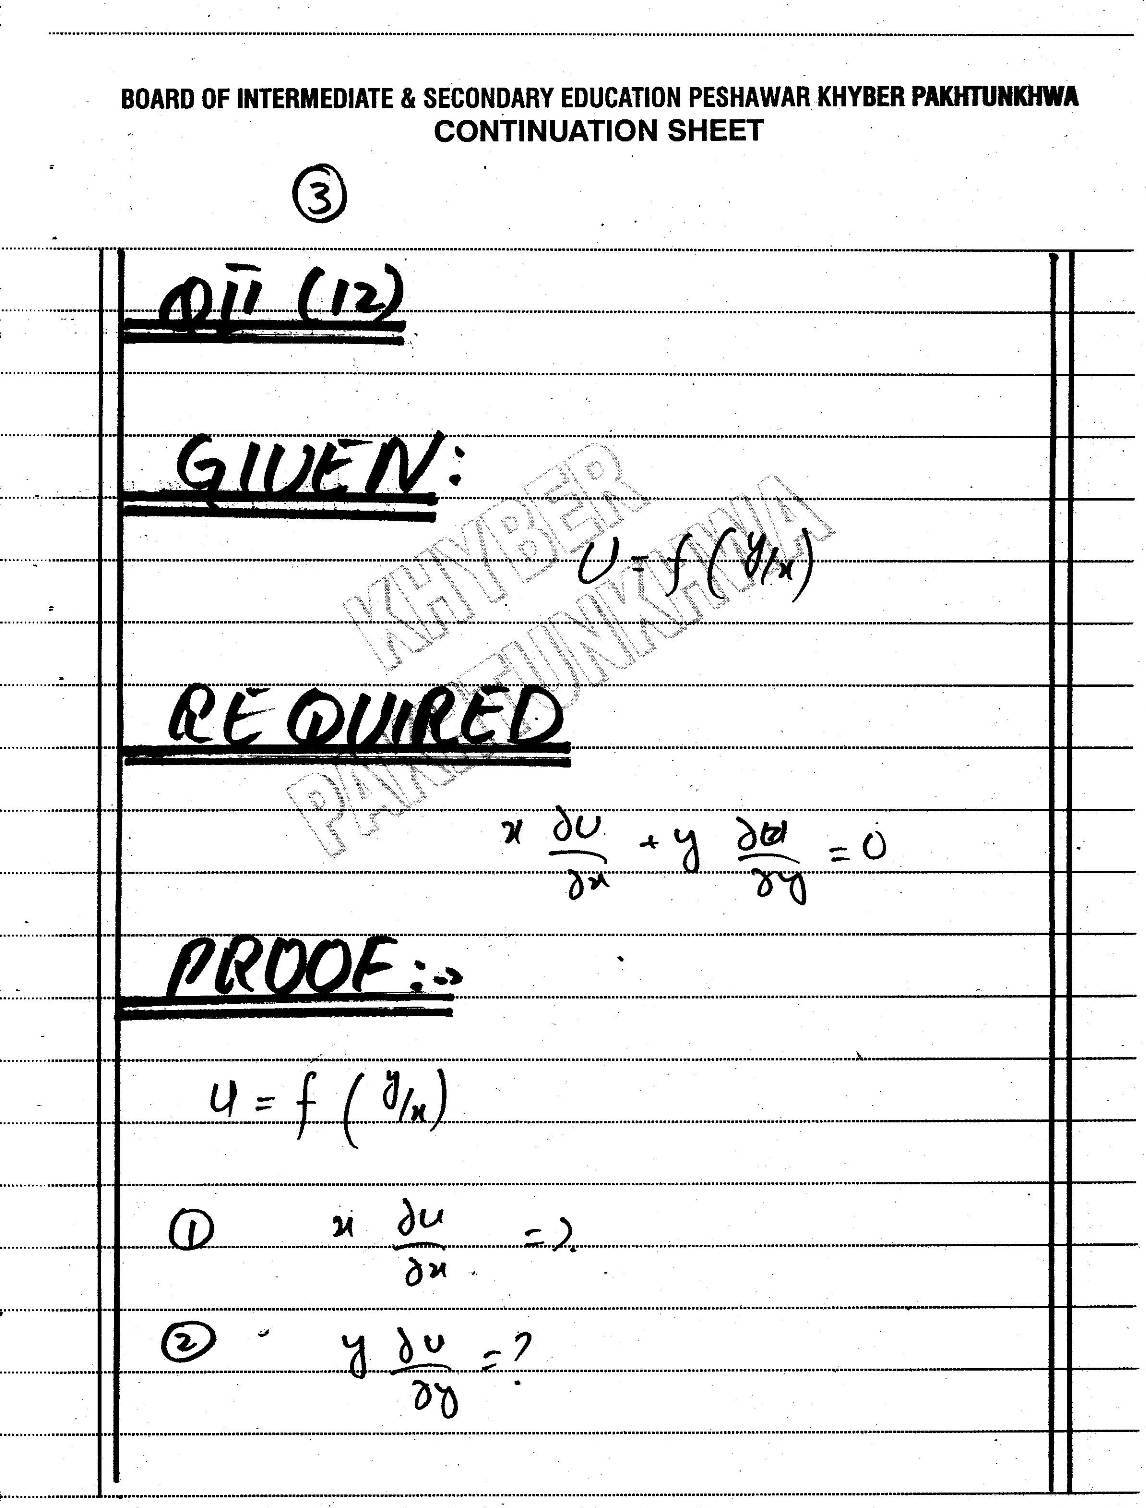 BOARD OF INTERMEDIATE & SECONDARY EDUCATION PESHAWAR KHYBER PAKHTUNKHWA
CONTINUATION SHEET
③
QII (12)
GIVEN:
U = f (y/x)
KHYBER
PAKHTUNKHWA
REQUIRED
x ∂U/∂x + y ∂u/∂y = 0
PROOF:->
u = f (y/x)
① x ∂u/∂x = ?
② y ∂u/∂y = ?